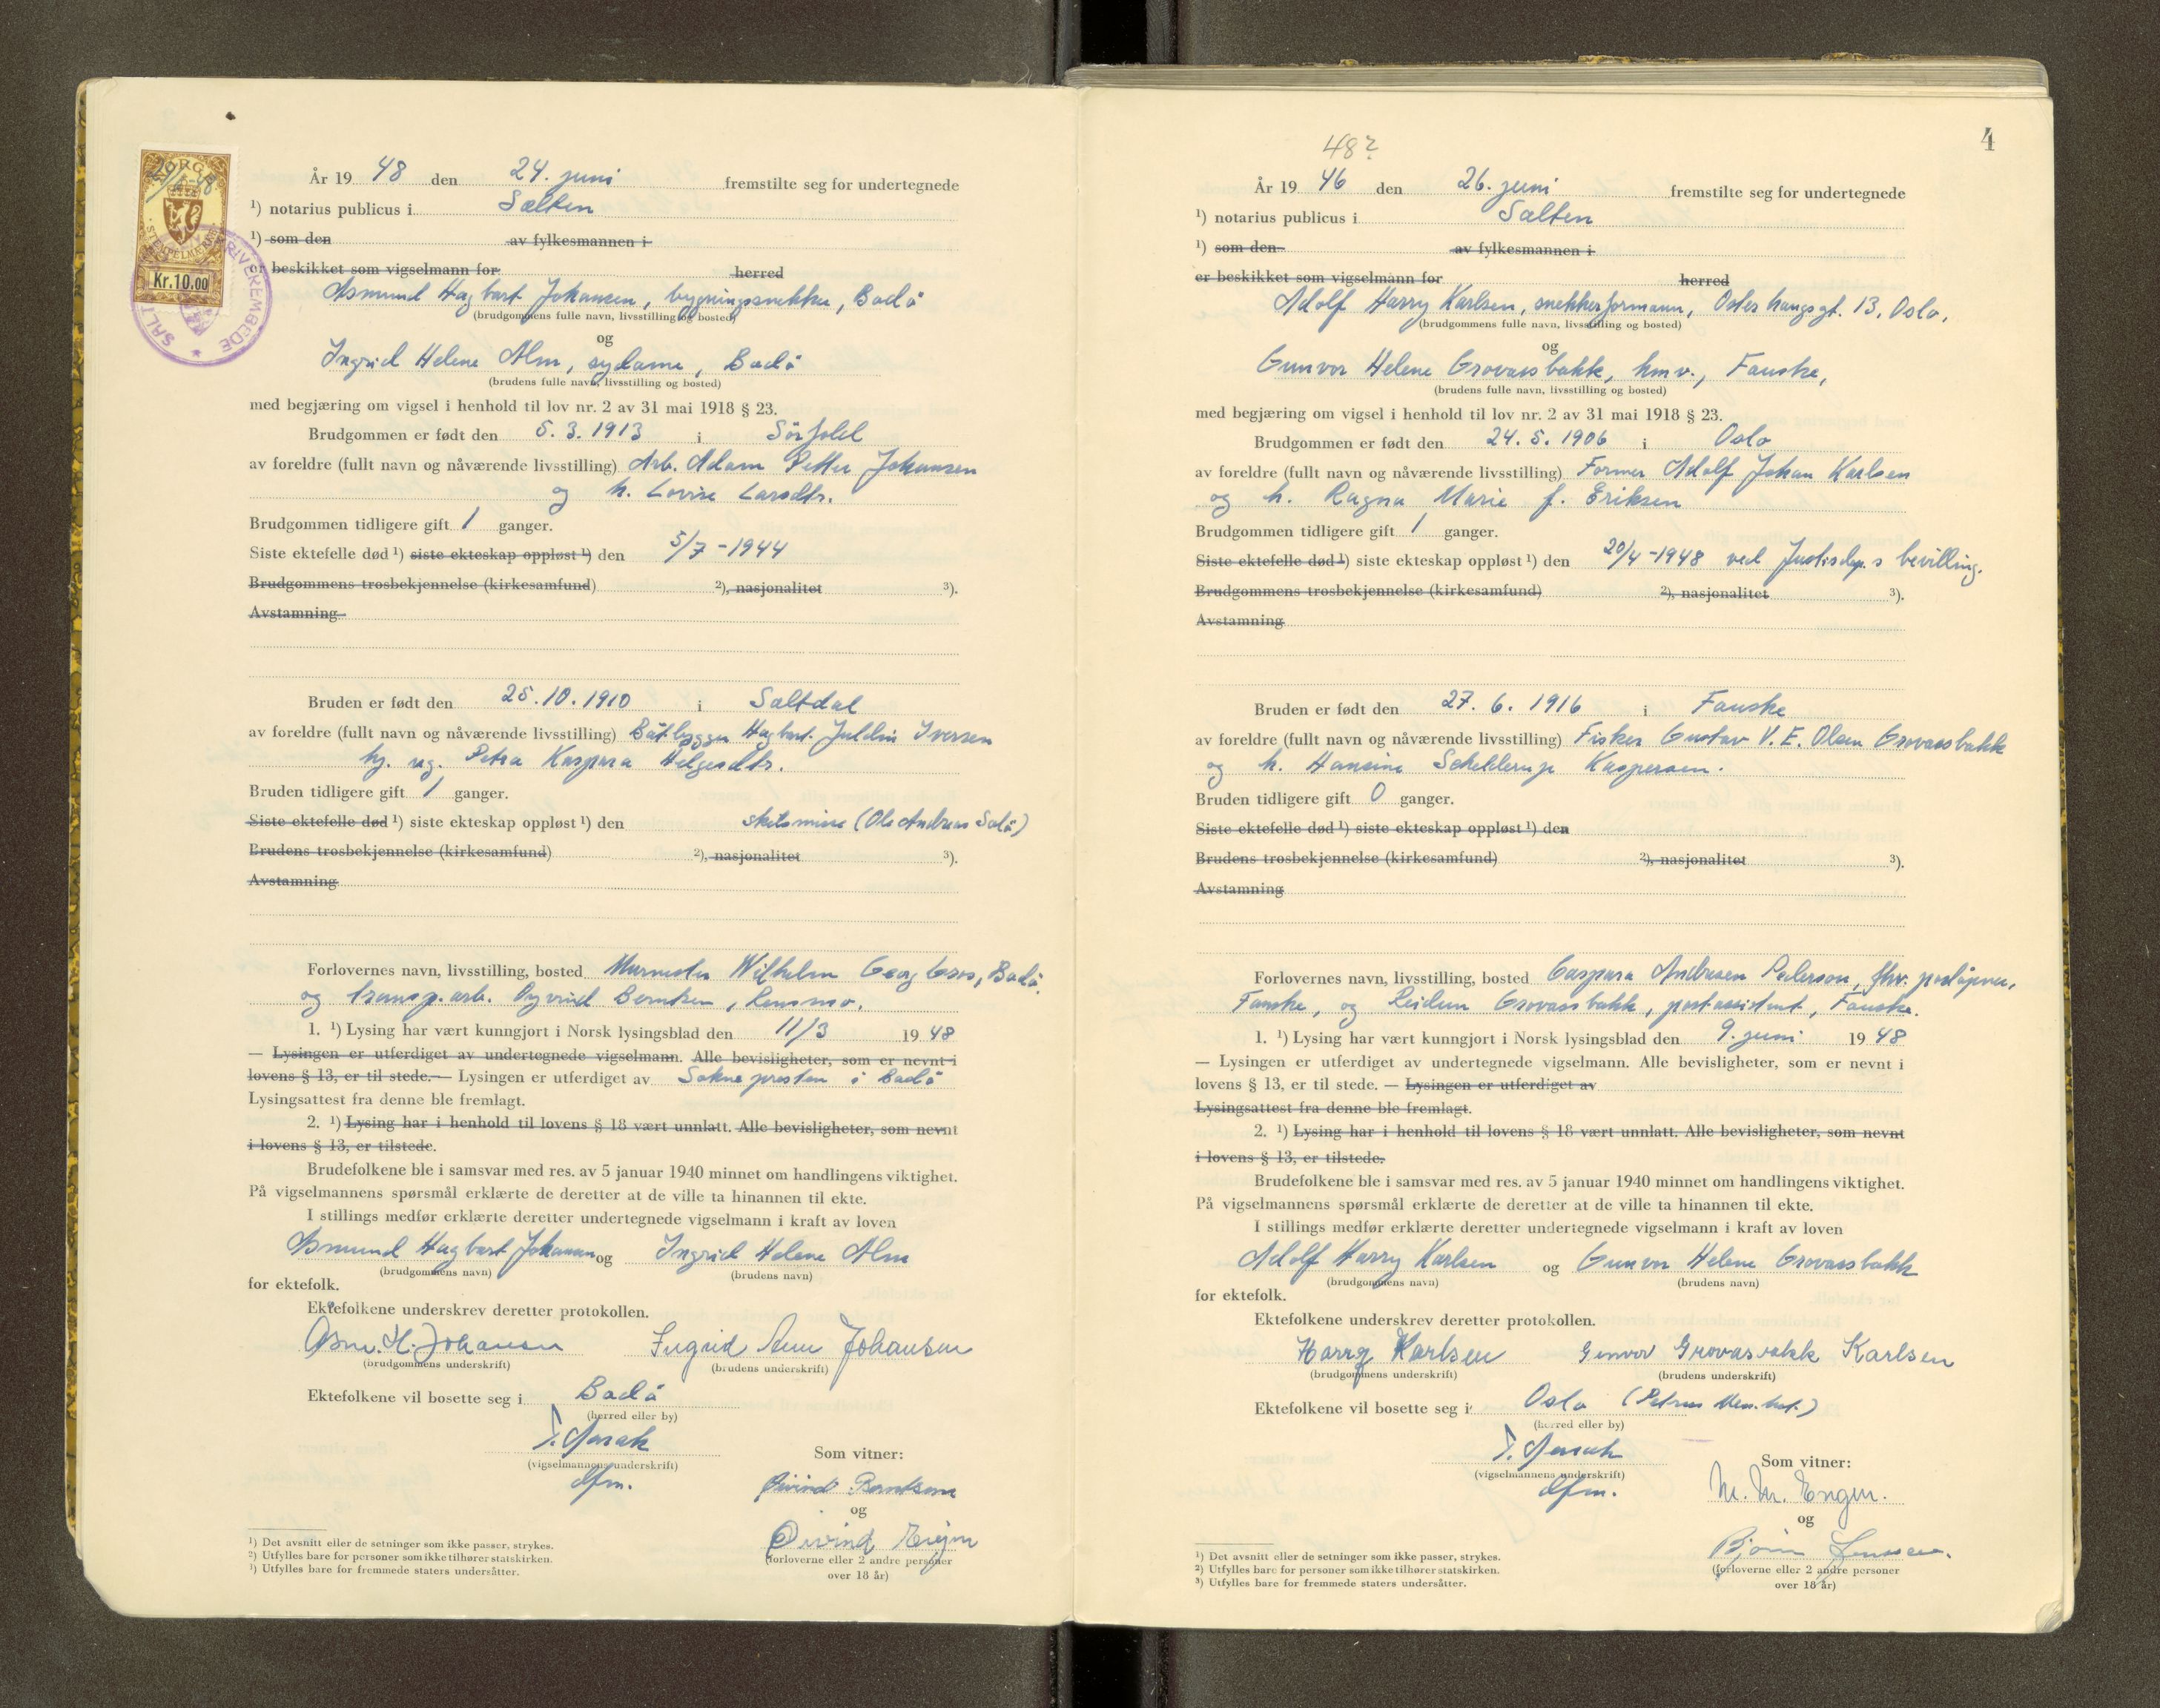 NORGE
STEMPELMERKE
Kr.10.00
SALT RIVEREMBEDE
År 19 48 den 24. juni fremstilte seg for undertegnede
¹) notarius publicus i Salten
¹) som den av fylkesmannen i
er beskikket som vigselmann for herred
Asmund Hagbart Johansen, bygningssnekker, Bodö
(brudgommens fulle navn, livsstilling og bosted)
og
Ingrid Helene Alm, sydame, Bodö
(brudens fulle navn, livsstilling og bosted)
med begjæring om vigsel i henhold til lov nr. 2 av 31 mai 1918 § 23.
Brudgommen er født den 5.3.1913 i Sörfold
av foreldre (fullt navn og nåværende livsstilling) Arb. Adam Petter Johansen
og h. Lovise Larsdtr.
Brudgommen tidligere gift 1 ganger.
Siste ektefelle død ¹) siste ekteskap oppløst ¹) den 5/7-1944
Brudgommens trosbekjennelse (kirkesamfund) ²), nasjonalitet ³).
Avstamning
Bruden er født den 25.10.1910 i Saltdal
av foreldre (fullt navn og nåværende livsstilling) Båtbygger Hagbart Iversen
Petra Kaspara Helgesdtr.
Bruden tidligere gift 1 ganger.
Siste ektefelle død ¹) siste ekteskap oppløst ¹) den skilsmisse (Ole Andreas)
Brudens trosbekjennelse (kirkesamfund) ²), nasjonalitet ³).
Avstamning
Forlovernes navn, livsstilling, bosted Murmester Wilhelm Georg Gros, Bodö
og transp.arb. Öyvind Berntsen, Rønsvik.
1. ¹) Lysing har vært kunngjort i Norsk lysingsblad den 11/3 19 48
— Lysingen er utferdiget av undertegnede vigselmann. Alle bevisligheter, som er nevnt i
lovens § 13, er til stede. — Lysingen er utferdiget av Soknepresten i Bodö
Lysingsattest fra denne ble fremlagt.
2. ¹) Lysing har i henhold til lovens § 18 vært unnlatt. Alle bevisligheter, som nevnt
i lovens § 13, er tilstede.
Brudefolkene ble i samsvar med res. av 5 januar 1940 minnet om handlingens viktighet.
På vigselmannens spørsmål erklærte de deretter at de ville ta hinannen til ekte.
I stillings medfør erklærte deretter undertegnede vigselmann i kraft av loven
Asmund Hagbart Johansen og Ingrid Helene Alm
(brudgommens navn) (brudens navn)
for ektefolk.
Ektefolkene underskrev deretter protokollen.
Asm. H. Johansen Ingrid Alm Johansen
(brudgommens underskrift) (brudens underskrift)
Ektefolkene vil bosette seg i Bodö
(herred eller by)
(vigselmannens underskrift)
dfm.
Som vitner:
Øivind Berntsen
og
Øivind
(forloverne eller 2 andre personer
over 18 år)
¹) Det avsnitt eller de setninger som ikke passer, strykes.
²) Utfylles bare for personer som ikke tilhører statskirken.
¹) Utfylles bare for fremmede staters undersåtter.
4
48?
År 19 46 den 26. juni fremstilte seg for undertegnede
¹) notarius publicus i Salten
¹) som den av fylkesmannen i
er beskikket som vigselmann for herred
Adolf Harry Karlsen, snekkerformann, Osterhausgt. 13, Oslo.
(brudgommens fulle navn, livsstilling og bosted)
og
Gunvor Helene Grovassbakk, hmv., Fauske,
(brudens fulle navn, livsstilling og bosted)
med begjæring om vigsel i henhold til lov nr. 2 av 31 mai 1918 § 23.
Brudgommen er født den 24.5.1906 i Oslo
av foreldre (fullt navn og nåværende livsstilling) Former Adolf Johan Karlsen
og h. Ragna Marie f. Eriksen
Brudgommen tidligere gift 1 ganger.
Siste ektefelle død ¹) siste ekteskap oppløst ¹) den 20/4-1948 ved Justisdep.s bevilling.
Brudgommens trosbekjennelse (kirkesamfund) ²), nasjonalitet ³).
Avstamning
Bruden er født den 27.6.1916 i Fauske
av foreldre (fullt navn og nåværende livsstilling) Fisker Gustav V. E. Olsen Grovassbakk
og h. Hansine Schelderup Kaspersen.
Bruden tidligere gift 0 ganger.
Siste ektefelle død ¹) siste ekteskap oppløst ¹) den
Brudens trosbekjennelse (kirkesamfund) ²), nasjonalitet ³).
Avstamning
Forlovernes navn, livsstilling, bosted Caspara Andresen Pederson, fhv. poståpner,
Fauske, og Reidun Grovassbakk, postassistent, Fauske.
1. ¹) Lysing har vært kunngjort i Norsk lysingsblad den 9. juni 19 48
— Lysingen er utferdiget av undertegnede vigselmann. Alle bevisligheter, som er nevnt i
lovens § 13, er til stede. — Lysingen er utferdiget av
Lysingsattest fra denne ble fremlagt.
2. ¹) Lysing har i henhold til lovens § 18 vært unnlatt. Alle bevisligheter, som nevnt
i lovens § 13, er tilstede.
Brudefolkene ble i samsvar med res. av 5 januar 1940 minnet om handlingens viktighet.
På vigselmannens spørsmål erklærte de deretter at de ville ta hinannen til ekte.
I stillings medfør erklærte deretter undertegnede vigselmann i kraft av loven
Adolf Harry Karlsen og Gunvor Helene Grovassbakk
(brudgommens navn) (brudens navn)
for ektefolk.
Ektefolkene underskrev deretter protokollen.
Harry Karlsen Gunvor Grovasbakk Karlsen
(brudgommens underskrift) (brudens underskrift)
Ektefolkene vil bosette seg i Oslo (Petrus Men.het.)
(herred eller by)
(vigselmannens underskrift)
dfm.
Som vitner:
M. M. Engen.
og
Bjørn
(forloverne eller 2 andre personer
over 18 år)
¹) Det avsnitt eller de setninger som ikke passer, strykes.
²) Utfylles bare for personer som ikke tilhører statskirken.
³) Utfylles bare for fremmede staters undersåtter.